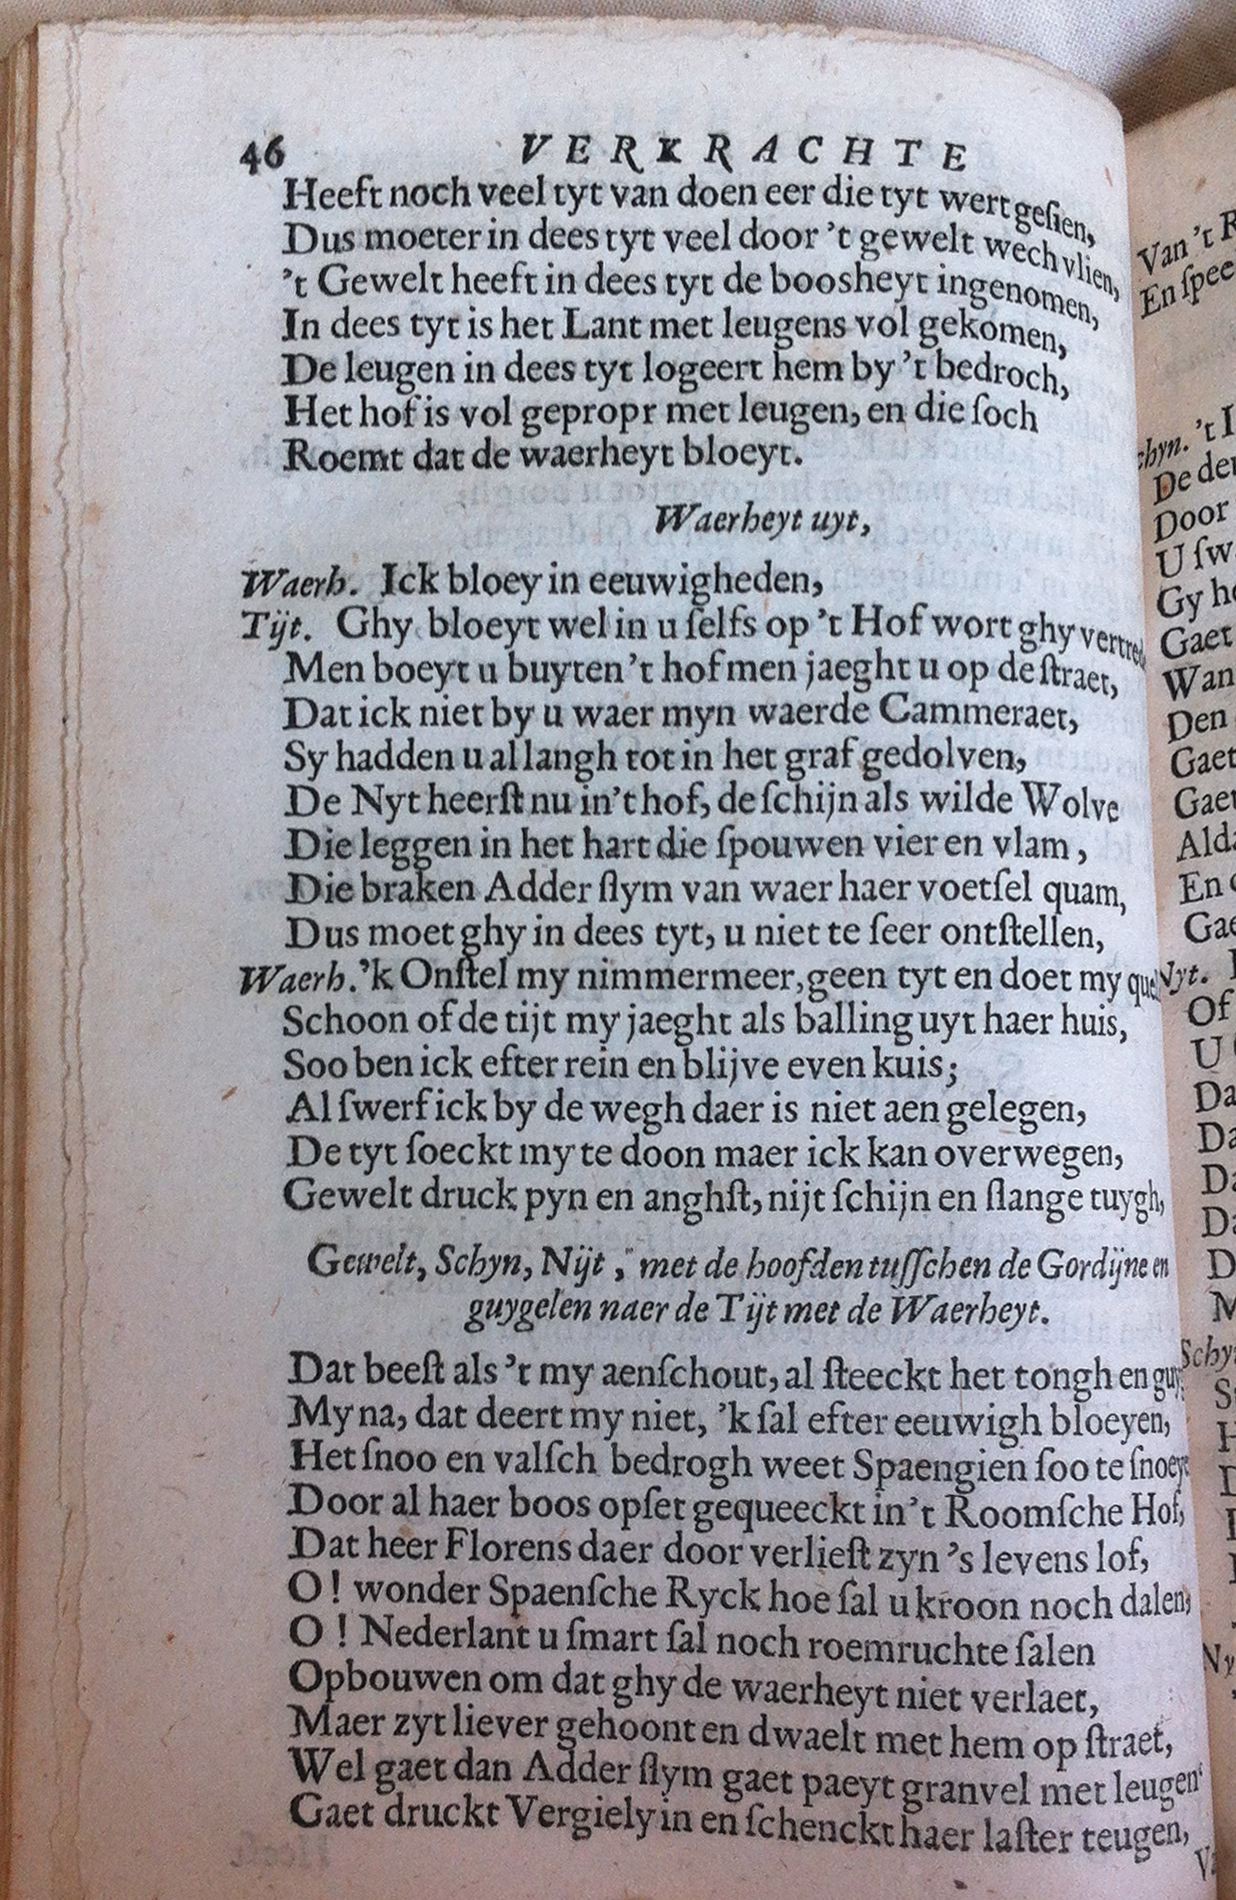 46 VERKRACHTE
Heeft noch veel tyt van doen eer die tyt wert geſien,
Dus moeter in dees tyt veel door 't gewelt wech vlien,
't Gewelt heeft in dees tyt de boosheyt ingenomen,
In dees tyt is het Lant met leugens vol gekomen,
De leugen in dees tyt logeert hem by 't bedroch,
Het hof is vol gepropt met leugen, en die ſoch
Roemt dat de waerheyt bloeyt.
Waerheyt uyt,
Waerh. Ick bloey in eeuwigheden,
Tijt. Ghy bloeyt wel in u ſelfs op 't Hof wort ghy vertrede
Men boeyt u buyten 't hof men jaeght u op de ſtraet,
Dat ick niet by u waer myn waerde Cammeraet,
Sy hadden u al langh tot in het graf gedolven,
De Nyt heerſt nu in't hof, de ſchijn als wilde Wolve
Die leggen in het hart die ſpouwen vier en vlam,
Die braken Adder ſlym van waer haer voetſel quam,
Dus moet ghy in dees tyt, u niet te ſeer ontſtellen,
Waerh. 'k Onſtel my nimmermeer, geen tyt en doet my quel
Schoon of de tijt my jaeght als balling uyt haer huis,
Soo ben ick efter rein en blijve even kuis;
Al ſwerf ick by de wegh daer is niet aen gelegen,
De tyt ſoeckt my te doon maer ick kan overwegen,
Gewelt druck pyn en anghſt, nijt ſchijn en ſlange tuygh,
Gewelt, Schyn, Nijt, met de hoofden tuſſchen de Gordijne en
guygelen naer de Tijt met de Waerheyt.
Dat beeſt als 't my aenſchout, al ſteeckt het tongh en guy
My na, dat deert my niet, 'k ſal efter eeuwigh bloeyen,
Het ſnoo en valſch bedrogh weet Spaengien ſoo te ſnoeye
Door al haer boos opſet gequeeckt in 't Roomſche Hof,
Dat heer Florens daer door verlieſt zyn 's levens lof,
O! wonder Spaenſche Ryck hoe ſal u kroon noch dalen,
O! Nederlant u ſmart ſal noch roemruchte ſalen
Opbouwen om dat ghy de waerheyt niet verlaet,
Maer zyt liever gehoont en dwaelt met hem op ſtraet,
Wel gaet dan Adder ſlym gaet paeyt granvel met leugen
Gaet druckt Vergiely in en ſchenckt haer laſter teugen,
Van 't R
En ſpee
chyn. 't I
De de
Door
U ſw
Gy h
Gaet
Wan
Den
Gaet
Gae
Ald
En
Gae
Nyt.
Of
U
Da
Da
D
D
D
M
Schy
S
H
D
Ny